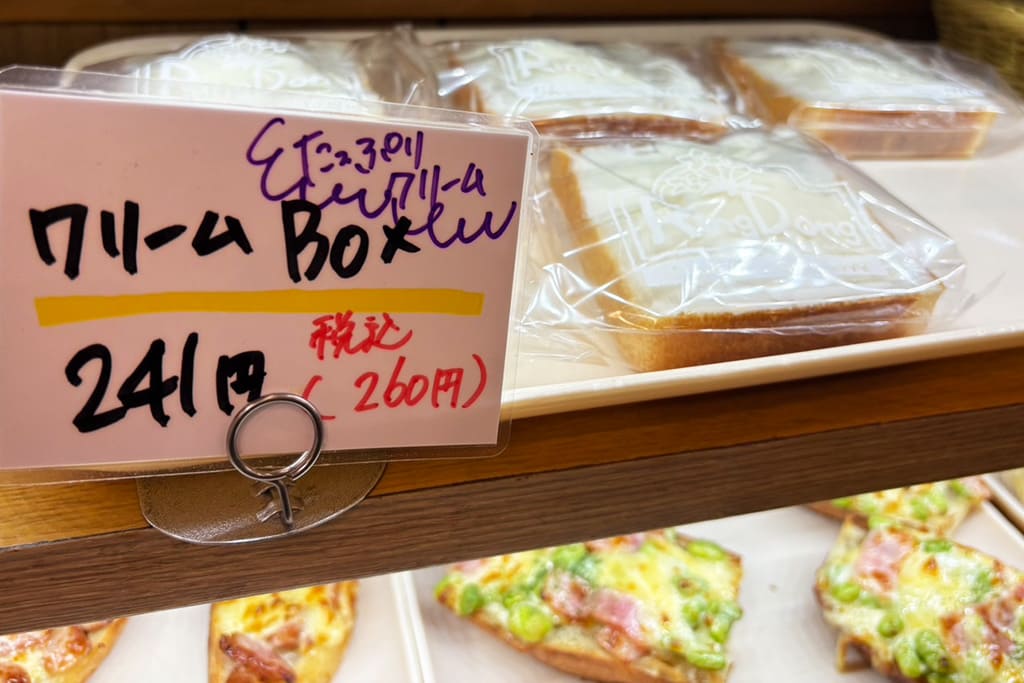 たっぷり
クリーム
クリーム BOX
241円
税込
(260円)
King Dong